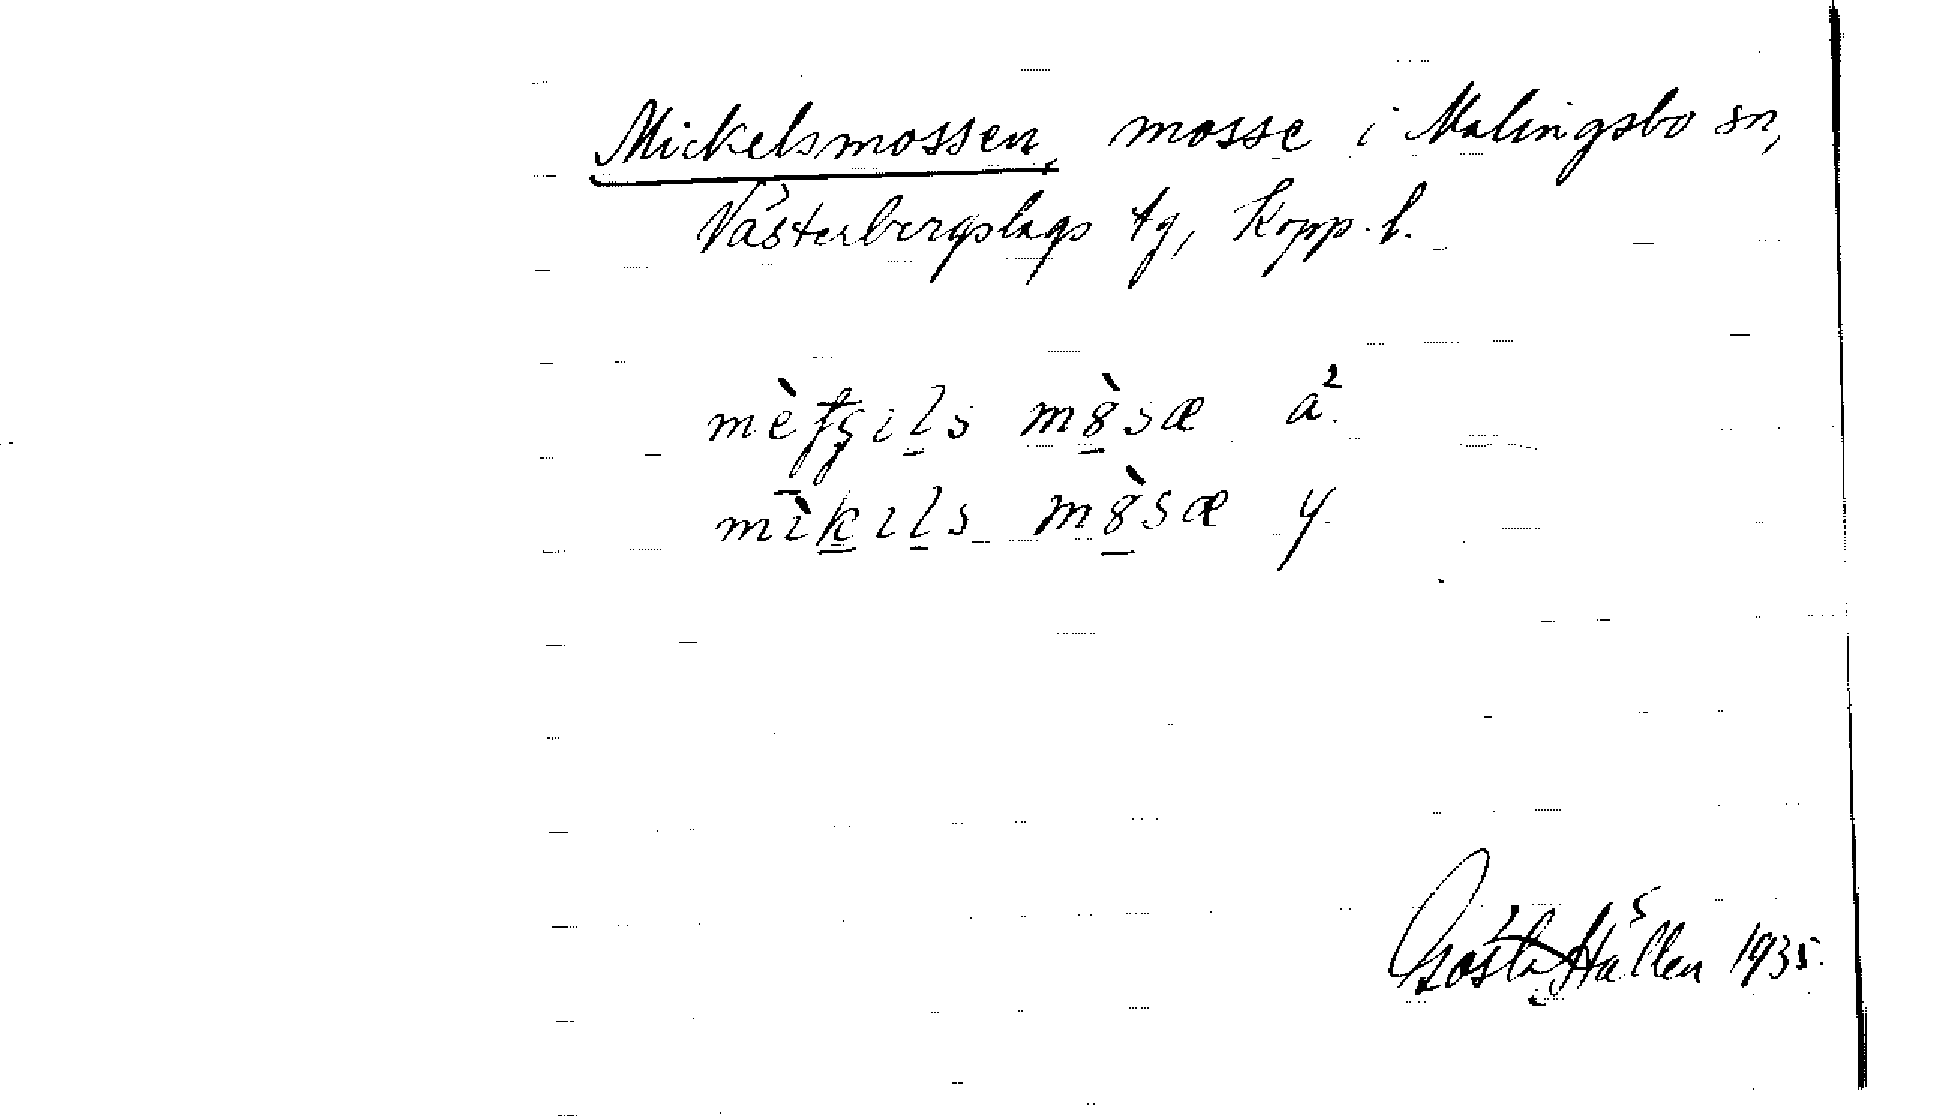 Mickelsmossen, mosse i Malingsbo sn,
Västerbergslags tg, Kopp. l.
mösæ a².
mìkils mösæ y
Gösta Hällen 1935.